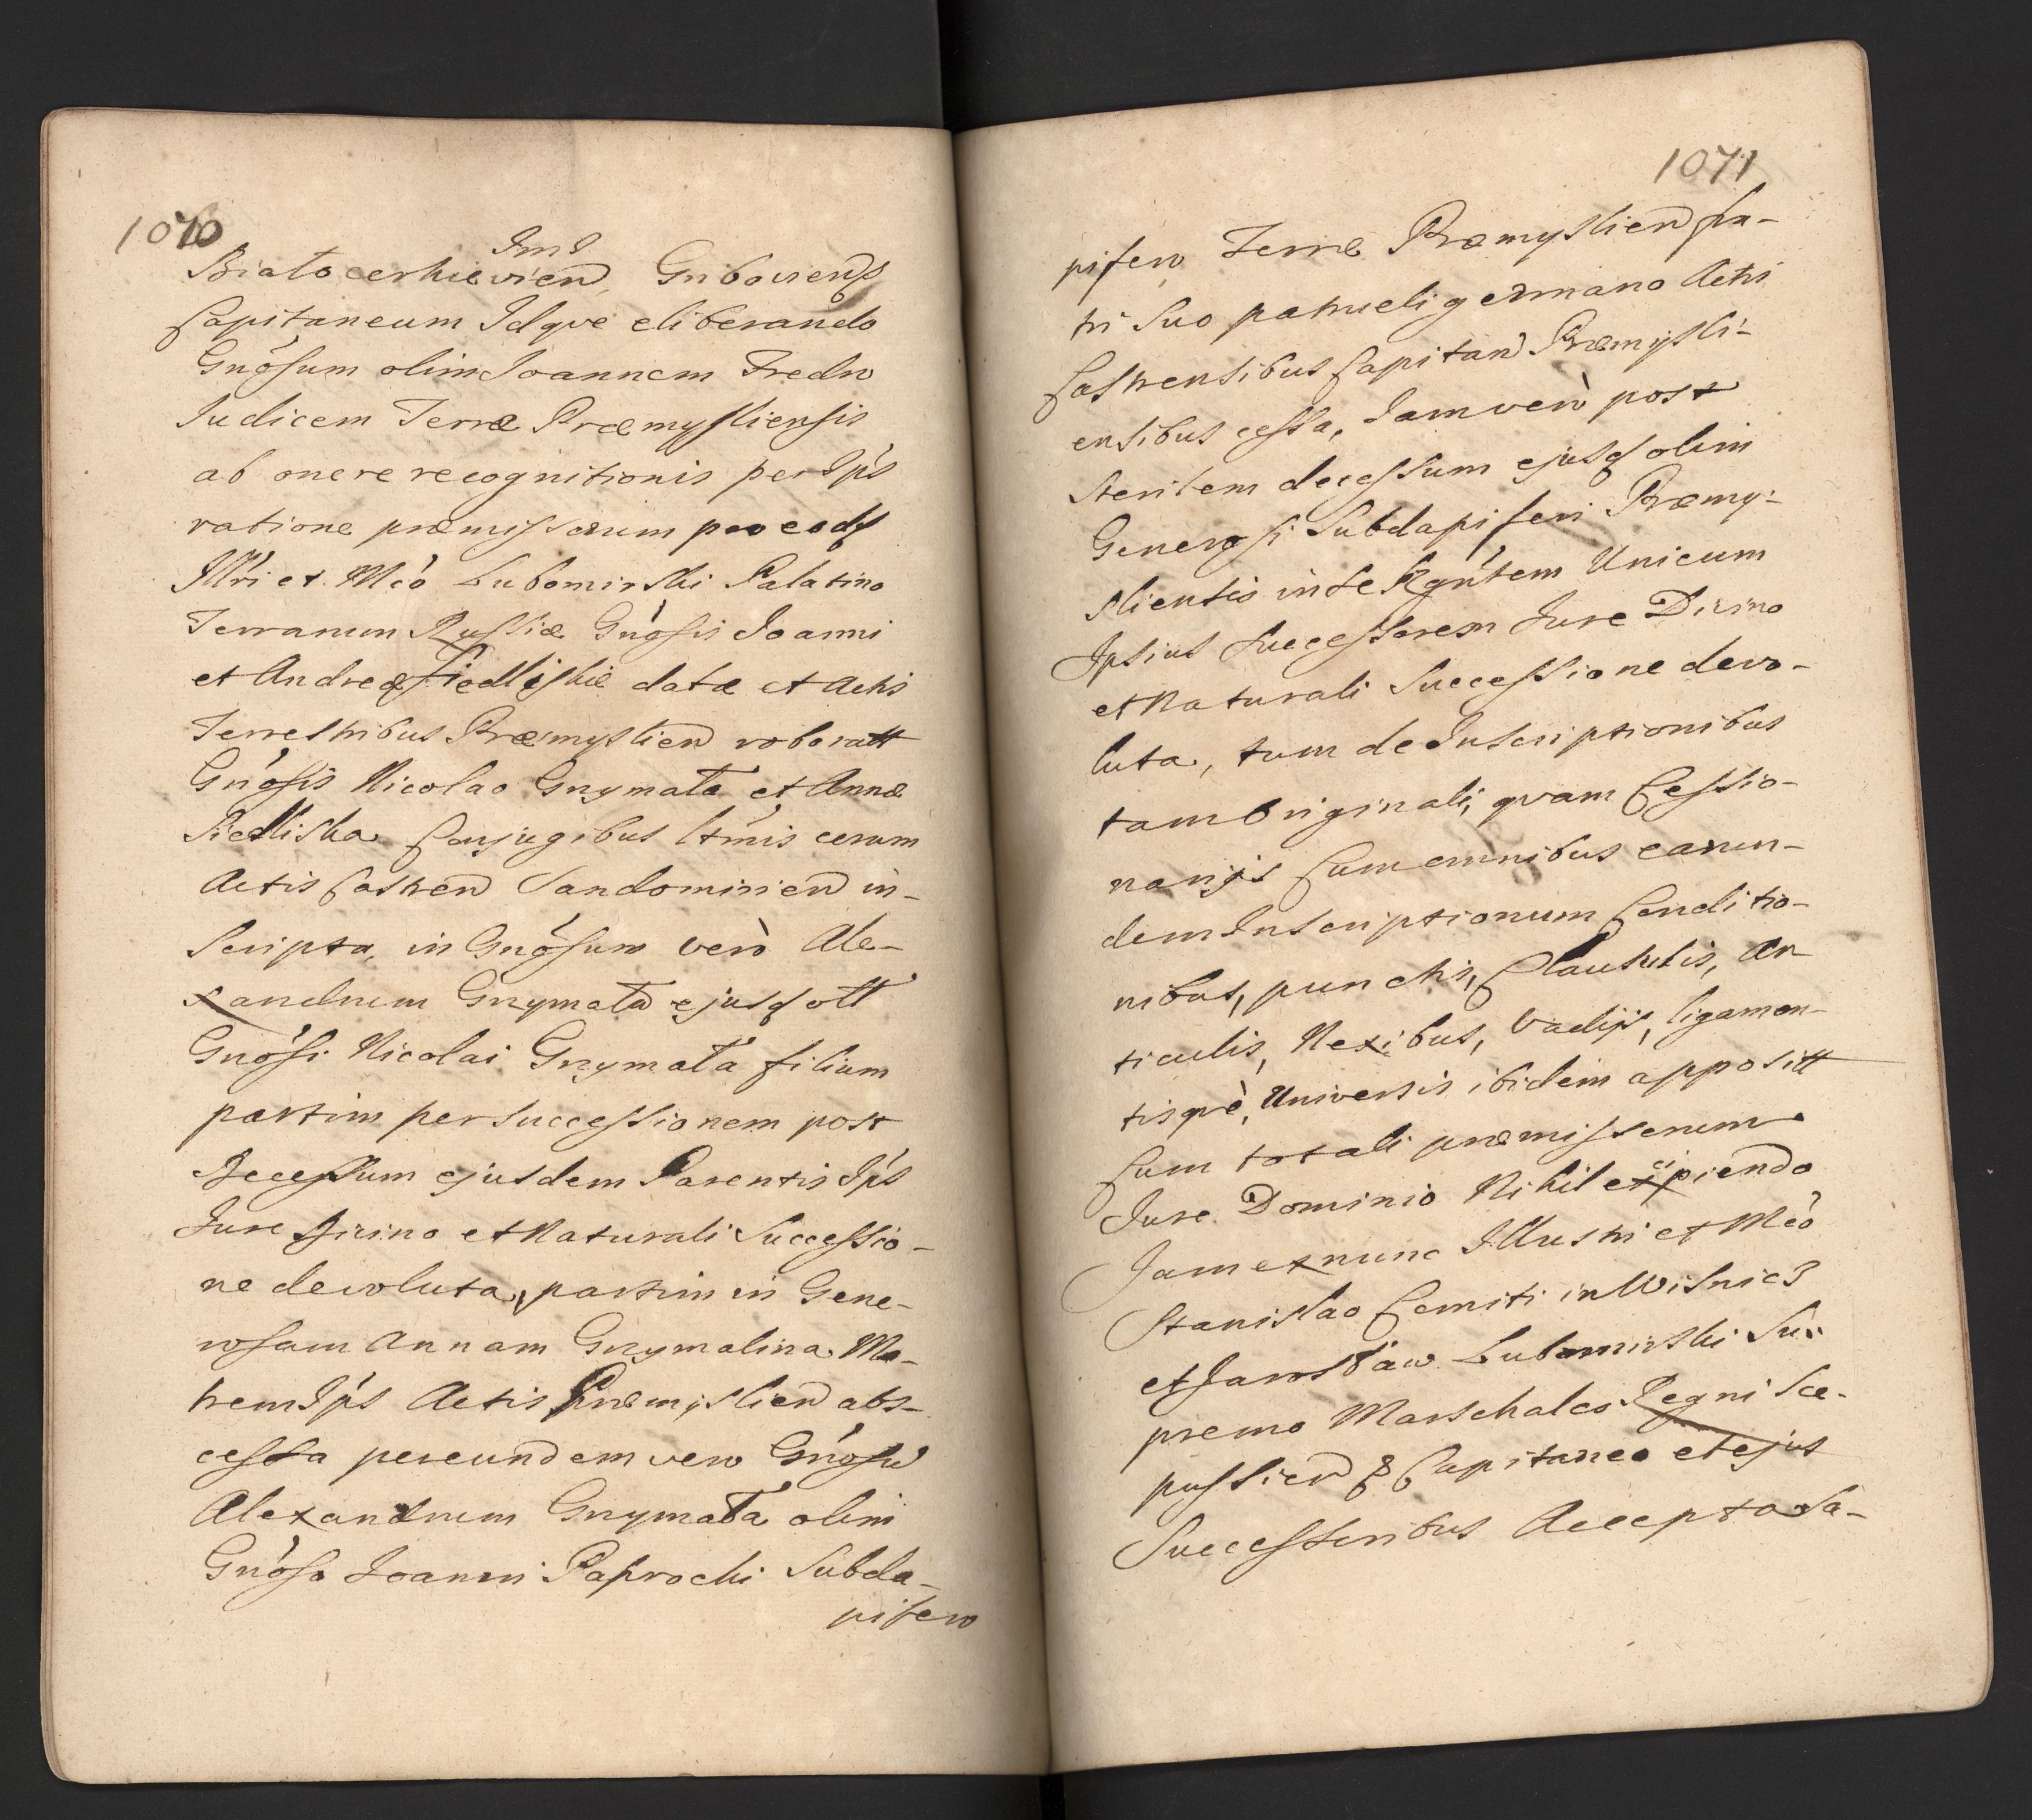 1070
Imd
Białocerkievien, Griboviens
Capitaneum Idqve eliberando
Gnósum olim Joannem Fredro
Iudicem Terræ Præmysliensis
ab onere recognitionis per Ip's
ratione præmissorum pro eod
Illri et Mco Lubomirski Palatino
Terrarum Russiæ Gnosis Joanni
et Andreæ Siedliskie datæ et Actis
Terrestribus Præmyslien roboratt
Gnósis Nicolao Grzymała et Annæ
Siedliska Conjugibus ltmis eorum
Actis Castren Sandomirien in-
scripta, in Gnósum verò Ale-
xandrum Grzymała ejusq ott
Gnósi Nicolai Grzymała filium
partim per successionem post
Decessum ejusdem Parentis Ip's
Jure Divino et Naturali Successio-
ne devoluta, partim in Gene-
rosam Annam Grzymalina Ma-
trem Ip's Actis Præmyslien abs-
cessa per eundem vero Gnósu
Alexandrum Grzymała olim
Gnóso Joanni Paprocki Subda-
pifero
1071
pifero Terræ Præmyslien fra-
tri Suo patrueli germano Actis
Castrensibus Capitan Præmysli-
ensibus cessa, Jam verò post
Sterilem decessum ejusq olim
Generosi Subdapiferi Præmy-
sliensis in se Rgntem Unicum
Ipsius Successorem Jure Divino
et Naturali Successione devo-
luta, tum de Inscriptionibus
tam Originali, qvam Cessio-
narijs Cum omnibus earun-
dem Inscriptionum Conditio-
nibus, punctis, Clausulis, Ar-
ticulis, Nexibus, Vadijs, ligamen-
tisqvè, Universis ibidem apposítt
Cum totali præmissorum
Jure Dominio Nihil excipiendo
Jam ex nunc Illustri et Mco
Stanislao Comiti in Wisnicz
et Jarosław Lubomirski Su-
premo Marschalco Regni Sce-
pussien & Capitaneo et ejus
Successoribus Accepta Sa-